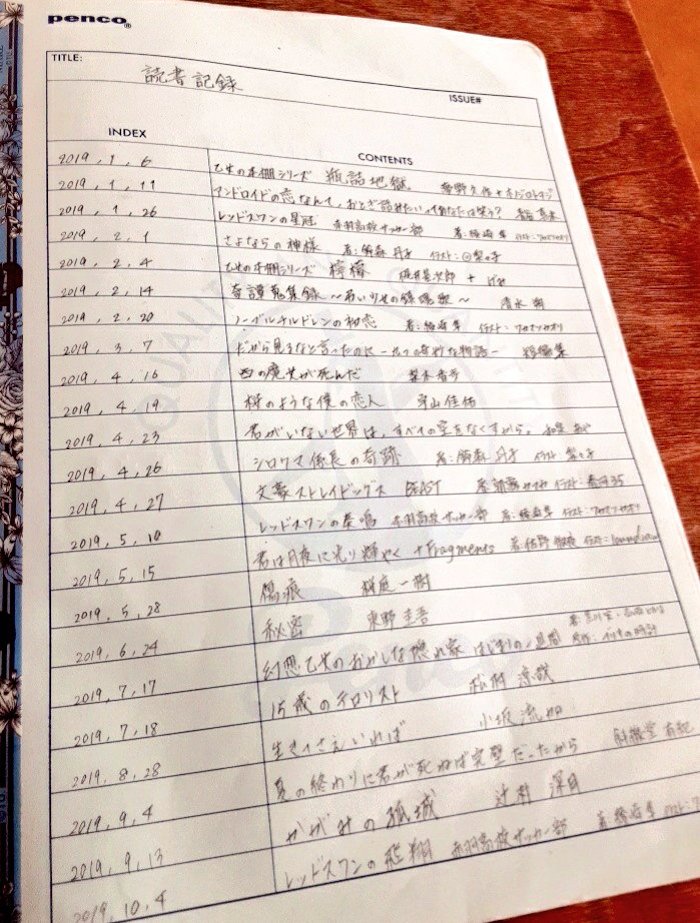 penco®
TITLE: 読書記録
ISSUE#
INDEX CONTENTS
2019.1.6 乙女の本棚シリーズ 瓶詰地獄 夢野久作+ホノジロトヲジ
2019.1.11 アンドロイドの恋なんて、おとぎ話みたいってあなたは笑う?
2019.1.26 レッドスワンの星冠 赤羽高校サッカー部 著:綾崎隼 イラスト:ワカマツカオリ
2019.2.1 さよならの神様 著: イラスト:
2019.2.4 乙女の本棚シリーズ 檸檬 梶井基次郎 + げみ
2019.2.14 奇譚蒐集録 清水朔
2019.2.20 ノーブルチルドレンの初恋 著:綾崎隼 イラスト:ワカマツカオリ
2019.3.7 だから見るなと言ったのに ー九つの奇妙な物語ー 短編集
2019.4.16 西の魔女が死んだ 梨木香歩
2019.4.19 桜のような僕の恋人 宇山佳佑
2019.4.23 君がいない世界は、すべての空をなくすから。 和泉あや
2019.4.26 シロクマ係長の奇跡 著: イラスト
2019.4.27 文豪ストレイドッグス BEAST 著:朝霧カフカ イラスト:春河35
2019.5.10 レッドスワンの奏鳴 赤羽高校サッカー部 著:綾崎隼 イラスト:ワカマツカオリ
2019.5.15 君は月夜に光り輝く +Fragments 著:佐野徹夜 イラスト:loundraw
2019.5.28 傷痕 桜庭一樹
2019.6.24 秘密 東野圭吾
2019.7.17 幻想乙女のおかしな隠れ家
2019.7.18 15歳のテロリスト 松村涼哉
2019.8.28 生きてさえいれば 小坂流加
2019.9.4 夏の終わりに君が死ねば完璧だったから 斜線堂有紀
2019.9.13 かがみの孤城 辻村深月
2019.10.4 レッドスワンの飛翔 赤羽高校サッカー部 著:綾崎隼